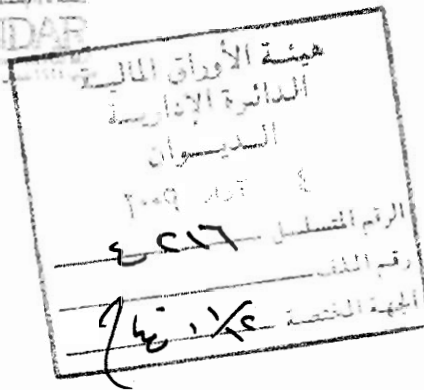 DAR
هيئة الأوراق المالية
الدائرة الإدارية
الديوان
٤ ٢٠٠٩
الرقم المتسلسل ٤٢١٦
رقم الملف
الجهة المختصة